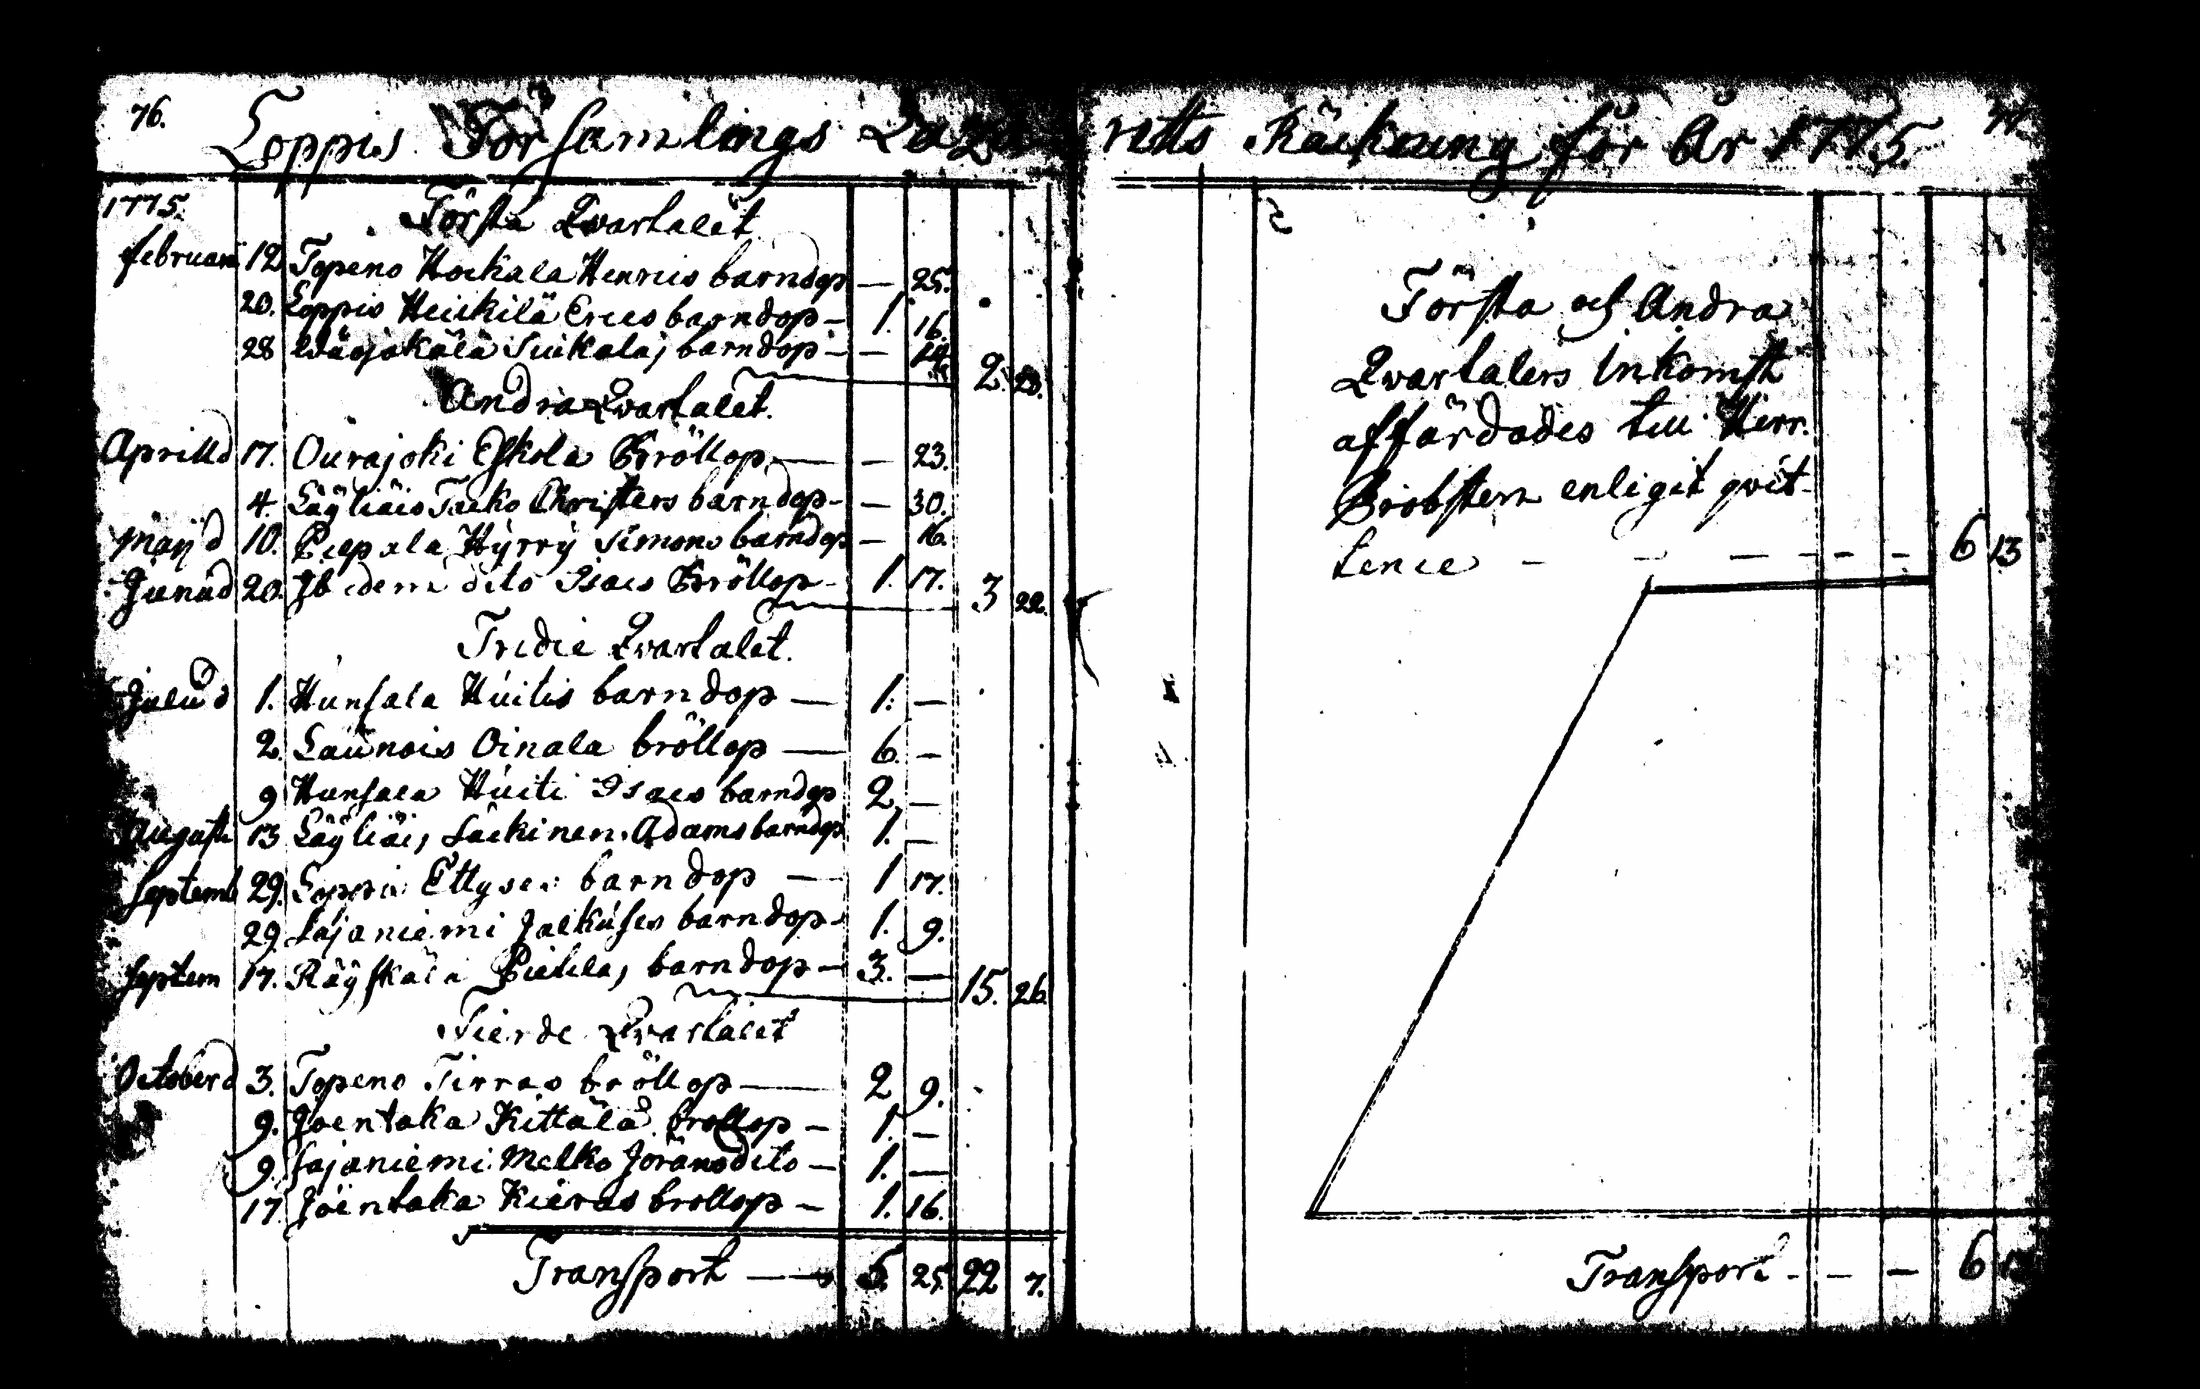 76.
Loppis Församlings Laza
1775.
Första Qvartalet
februari 12. Topeno Hockala Henrics barndop — 25.
20. Loppis Heickilä Erics barndop — 1. 16.
28 barndop — —
2. 23.
Andra Qvartalet.
Aprill d 17. Ourajoki Eskola Bröllop — — 23.
4. Läyliäis Tacko Christers barndop — — 30.
Maij d 10. Pilpala Hyrry Simons barndop — 16.
Junii d 20. Ibidem dito Isacs Bröllop — 1. 17. 3 22.
Tredie Qvartalet.
Julii d 1. Hunsala Huitis barndop — 1. —
2. Launois Oinala bröllop — 6. —
9 Hunsala Huiti Isacs barndop 2. —
Augusti 13 Läyliäis Lackinen Adams barndop 1. —
Septemb 29. Loppis barndop — 1 17.
29. Sajaniemi barndop — 1. 9.
Septem 17. Räyskälä Pietilas barndop — 3. — 15. 26.
Fierde Qvartalet
October d 3. Topeno Tirras bröllop — 2 9.
9. Joentaka Kittälä bröllop — 1. —
9. Sajaniemi Melko Jörans dito — 1. —
17 Joentaka Kieras bröllop — 1. 16.
Transport — 5. 25. 22 7.
retts Räckning för År 1775.
77.
Första och Andra
Qvartalers Inkomst
affärdades till Herr
Probsten enligit qvit-
tence - - - - - - 6 13
Transport - - - 6 13